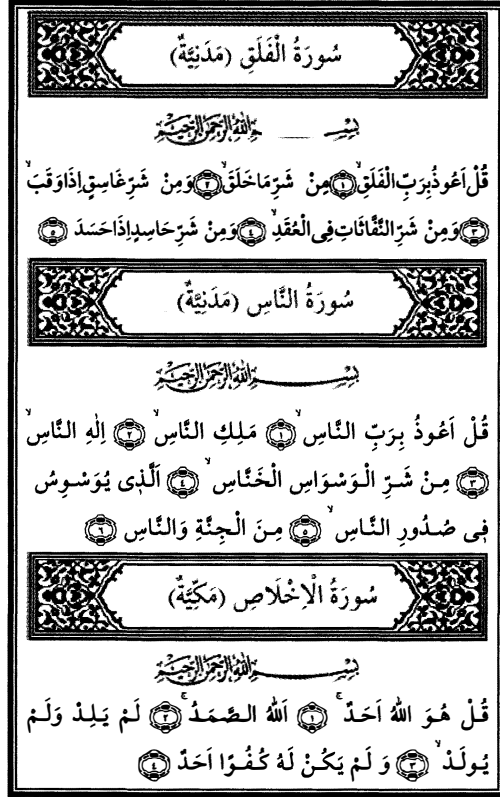 سُورَةُ الْفَلَقِ (مَدَنِيَّةٌ)
بِسْمِ اللّٰهِ الرَّحْمٰنِ الرَّحِيْمِ
قُلْ اَعُوذُ بِرَبِّ الْفَلَقِۙ ﴿١﴾ مِنْ شَرِّ مَا خَلَقَۙ ﴿٢﴾ وَمِنْ شَرِّ غَاسِقٍ اِذَا وَقَبَۙ
﴿٣﴾ وَمِنْ شَرِّ النَّفَّاثَاتِ فِى الْعُقَدِۙ ﴿٤﴾ وَمِنْ شَرِّ حَاسِدٍ اِذَا حَسَدَ ﴿٥﴾
سُورَةُ النَّاسِ (مَدَنِيَّةٌ)
بِسْمِ اللّٰهِ الرَّحْمٰنِ الرَّحِيْمِ
قُلْ اَعُوذُ بِرَبِّ النَّاسِۙ ﴿١﴾ مَلِكِ النَّاسِۙ ﴿٢﴾ اِلٰهِ النَّاسِۙ
﴿٣﴾ مِنْ شَرِّ الْوَسْوَاسِ الْخَنَّاسِۙ ﴿٤﴾ اَلَّذِى يُوَسْوِسُ
فِى صُدُورِ النَّاسِۙ ﴿٥﴾ مِنَ الْجِنَّةِ وَالنَّاسِ ﴿٦﴾
سُورَةُ الْاِخْلَاصِ (مَكِّيَّةٌ)
بِسْمِ اللّٰهِ الرَّحْمٰنِ الرَّحِيْمِ
قُلْ هُوَ اللّٰهُ اَحَدٌۚ ﴿١﴾ اَللّٰهُ الصَّمَدُۚ ﴿٢﴾ لَمْ يَلِدْ وَلَمْ
يُولَدْۙ ﴿٣﴾ وَ لَمْ يَكُنْ لَهُ كُفُوًا اَحَدٌ ﴿٤﴾